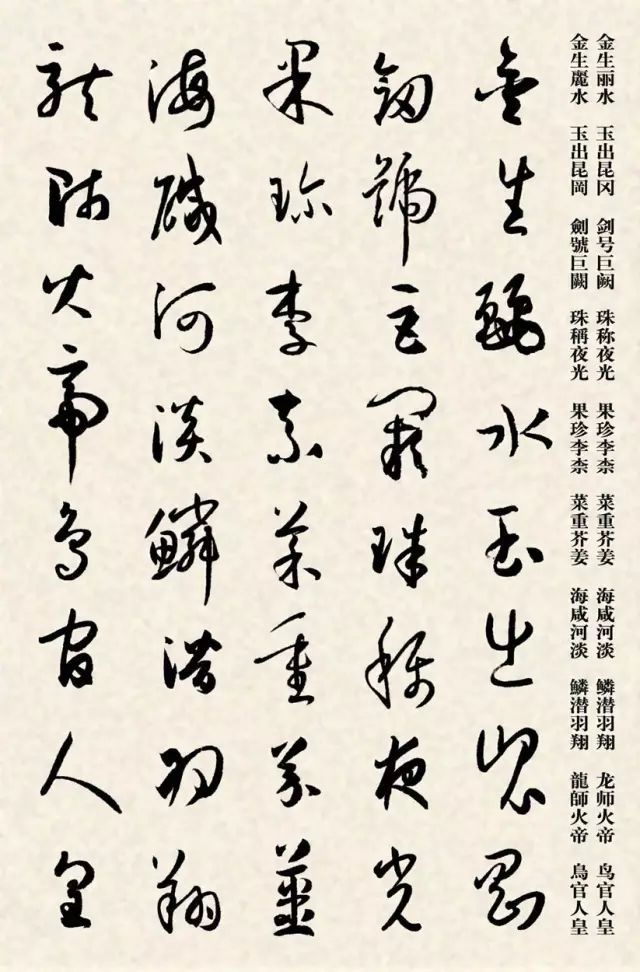 金生丽水 玉出昆冈 剑号巨阙 珠称夜光 果珍李柰 菜重芥姜 海咸河淡 鳞潜羽翔 龙师火帝 鸟官人皇
金生麗水 玉出昆岡 劍號巨闕 珠稱夜光 果珍李柰 菜重芥姜 海咸河淡 鱗潜羽翔 龍師火帝 鳥官人皇
金生麗水玉出崐岡
劒號巨闕珠稱夜光
果珍李柰菜重芥薑
海鹹河淡鱗潜羽翔
龍師火帝鳥官人皇